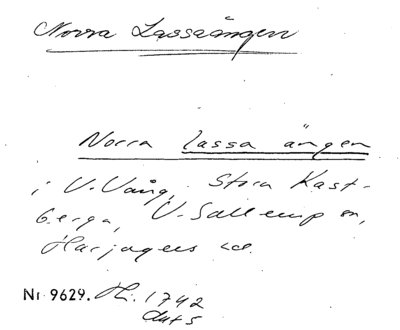 Norra Lassaängen
Norra lassa ängen
i V. Vång, Stora Kast-
berga, V. Sallerup sn,
Harjagers hd.
Nr 9629. Hi. 1742
akt 5